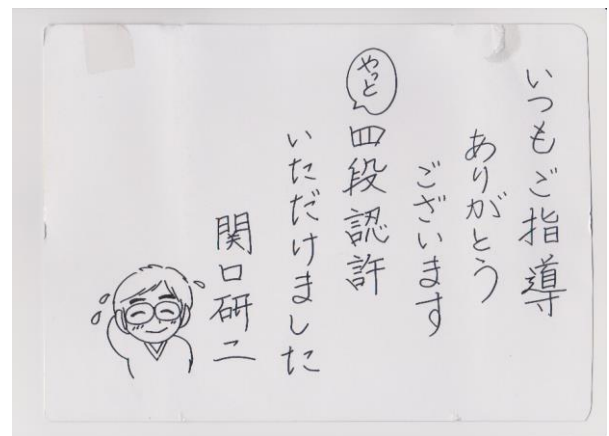 いつもご指導
ありがとう
ございます
やっと
四段認許
いただけました
関口研二